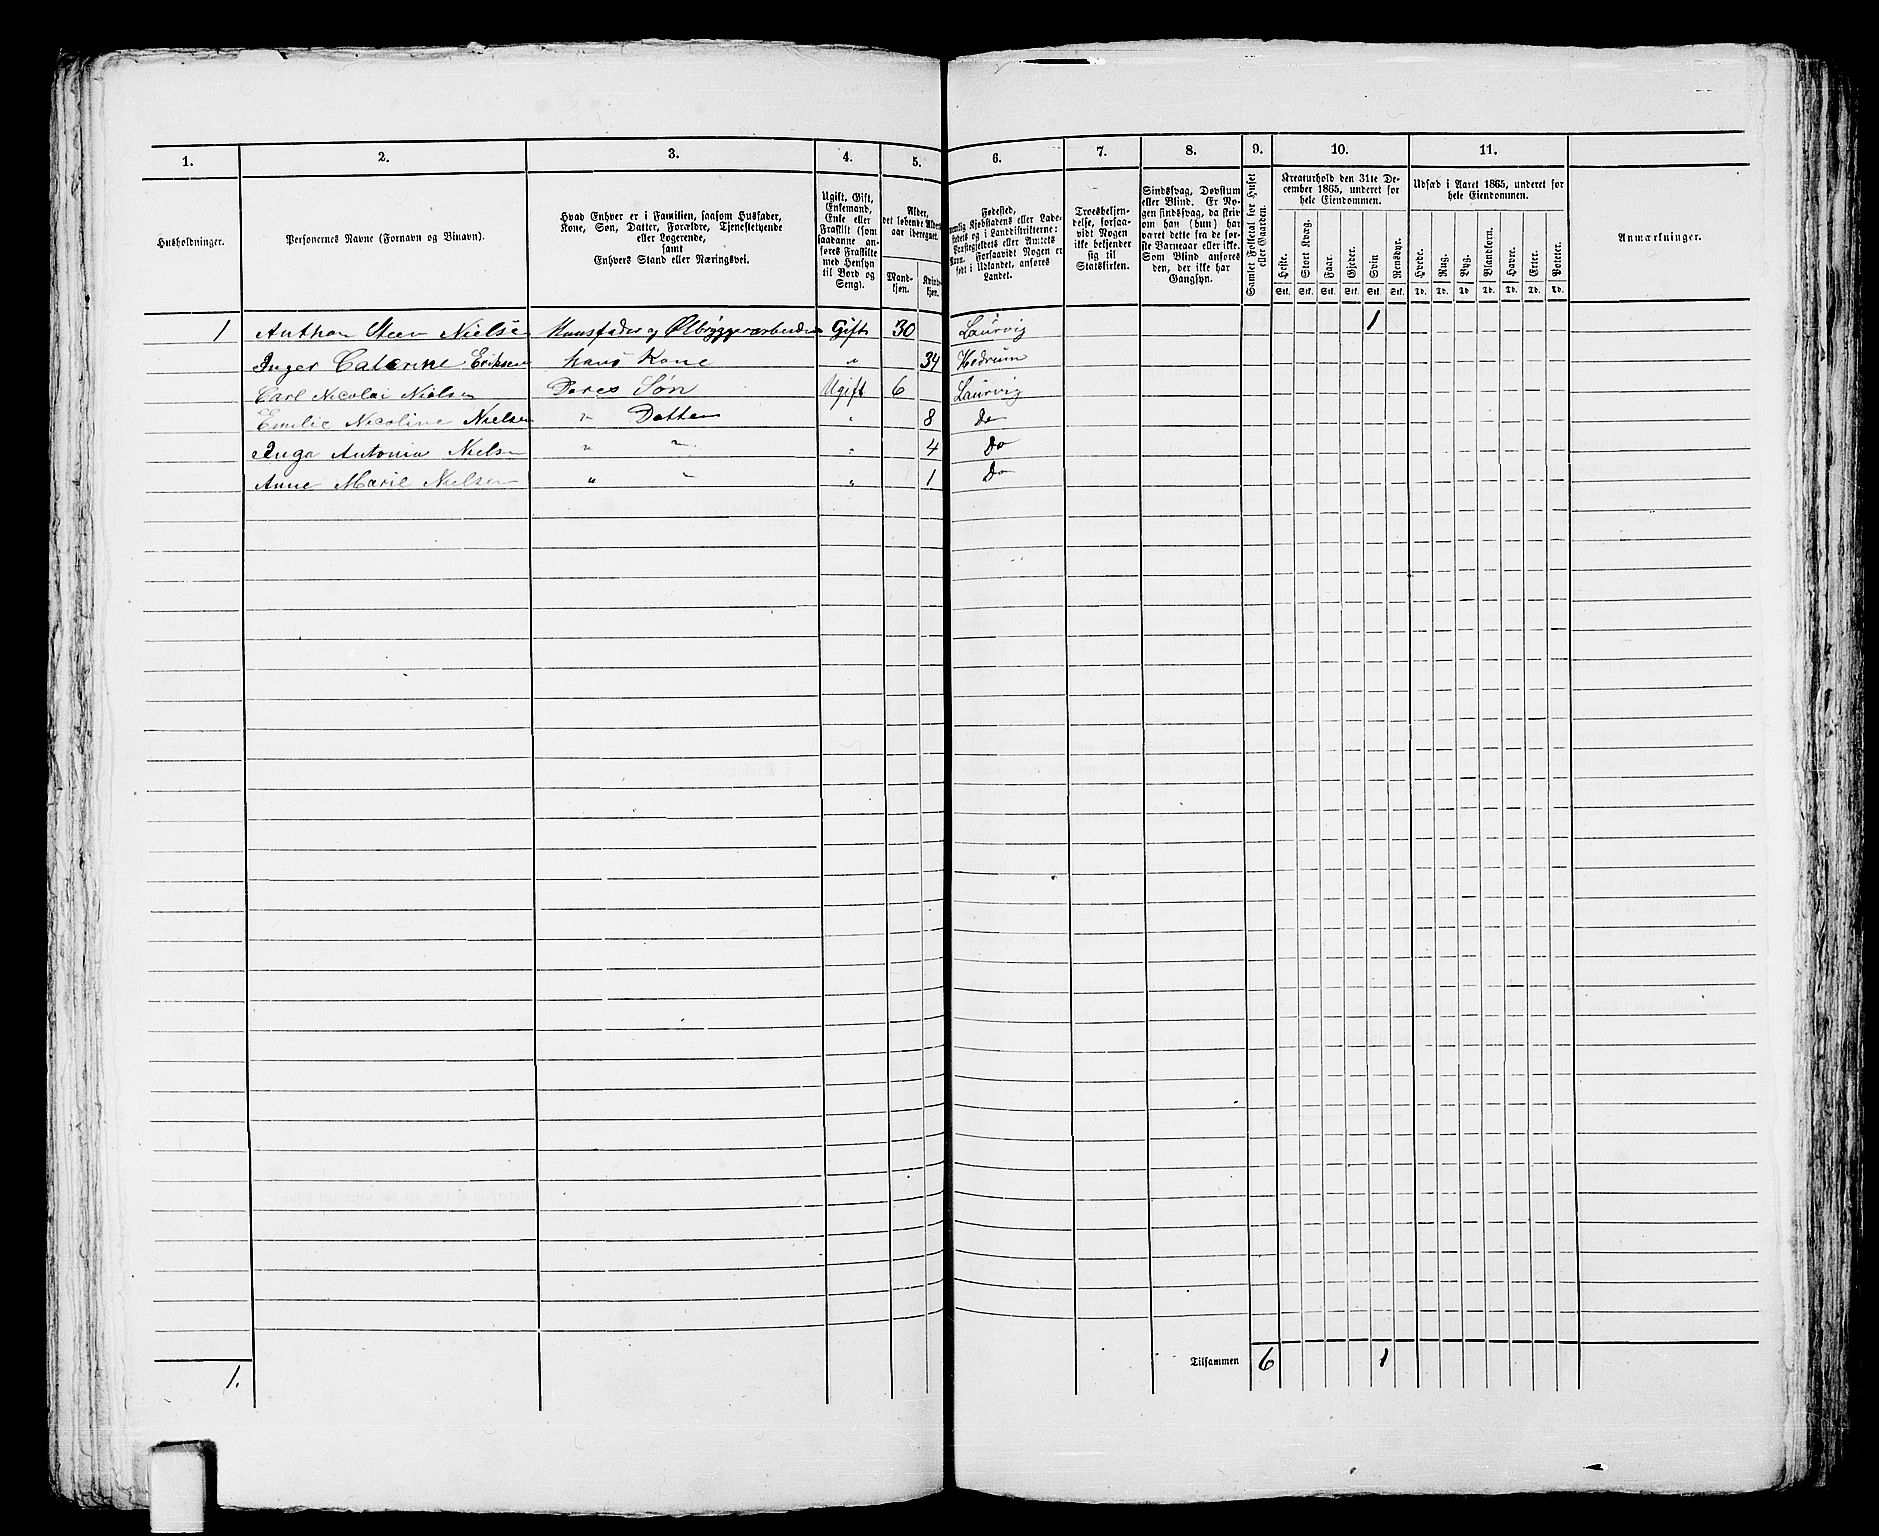 1. 2. 3. 4. 5. 6. 7. 8. 9. 10. 11.
Husholdninger.
Personernes Navne (Fornavn og Binavn).
Hvad Enhver er i Familien, saasom Husfader,
Kone, Søn, Datter, Forældre, Tjenestetyende
eller Logerende,
samt
Enhvers Stand eller Næringsvei.
Ugift, Gift,
Enkemand,
Enke eller
Fraskilt (som
saadanne an-
føres Fraskilte
med Hensyn
til Bord og
Seng).
Alder,
det løbende Alders-
aar iberegnet.
Mand-
kjøn.
Kvinde-
kjøn.
Fødested,
nemlig Kjøbstadens eller Lade-
stedets og i Landdistrikterne:
Præstegjeldets eller Amtets
Navn. Forsaavidt Nogen er
født i Udlandet, anføres
Landet.
Troesbekjen-
delse, forsaa-
vidt Nogen
ikke bekjender
sig til
Statskirken.
Sindssvag, Døvstum
eller Blind. Er No-
gen sindssvag, da skriv
om han (hun) har
været dette fra de før-
ste Barneaar eller ikke.
Som Blind anføres
den, der ikke har
Gangsyn.
Samlet Folketal for Huset
eller Gaarden.
Kreaturhold den 31te De-
cember 1865, underet for
hele Eiendommen.
Heste. Stort Kvæg. Faar. Gjeder. Svin Rensdyr.
Stk. Stk. Stk. Stk. Stk. Stk.
Udsæd i Aaret 1865, underet for
hele Eiendommen.
Hvede. Rug. Byg. Blandkorn. Havre. Erter. Poteter.
Td. Td. Td Td. Td. Td. Td.
Anmærkninger.
1 Anthon Steen Nielse Huusfader og Ølbryggerarbeider Gift 30 Laurvig 1
Inger Catarine Eriksen Hans Kone " 34 Hedrum
Carl Nicolai Nielsen Deres Søn Ugift 6 Laurvig
Emilie Nicoline Nielsen " Datter " 8 Do
Inga Antonia Nielsen " " " 4 Do
Anne Marie Nielsen " " " 1 Do
1. Tilsammen 6 1